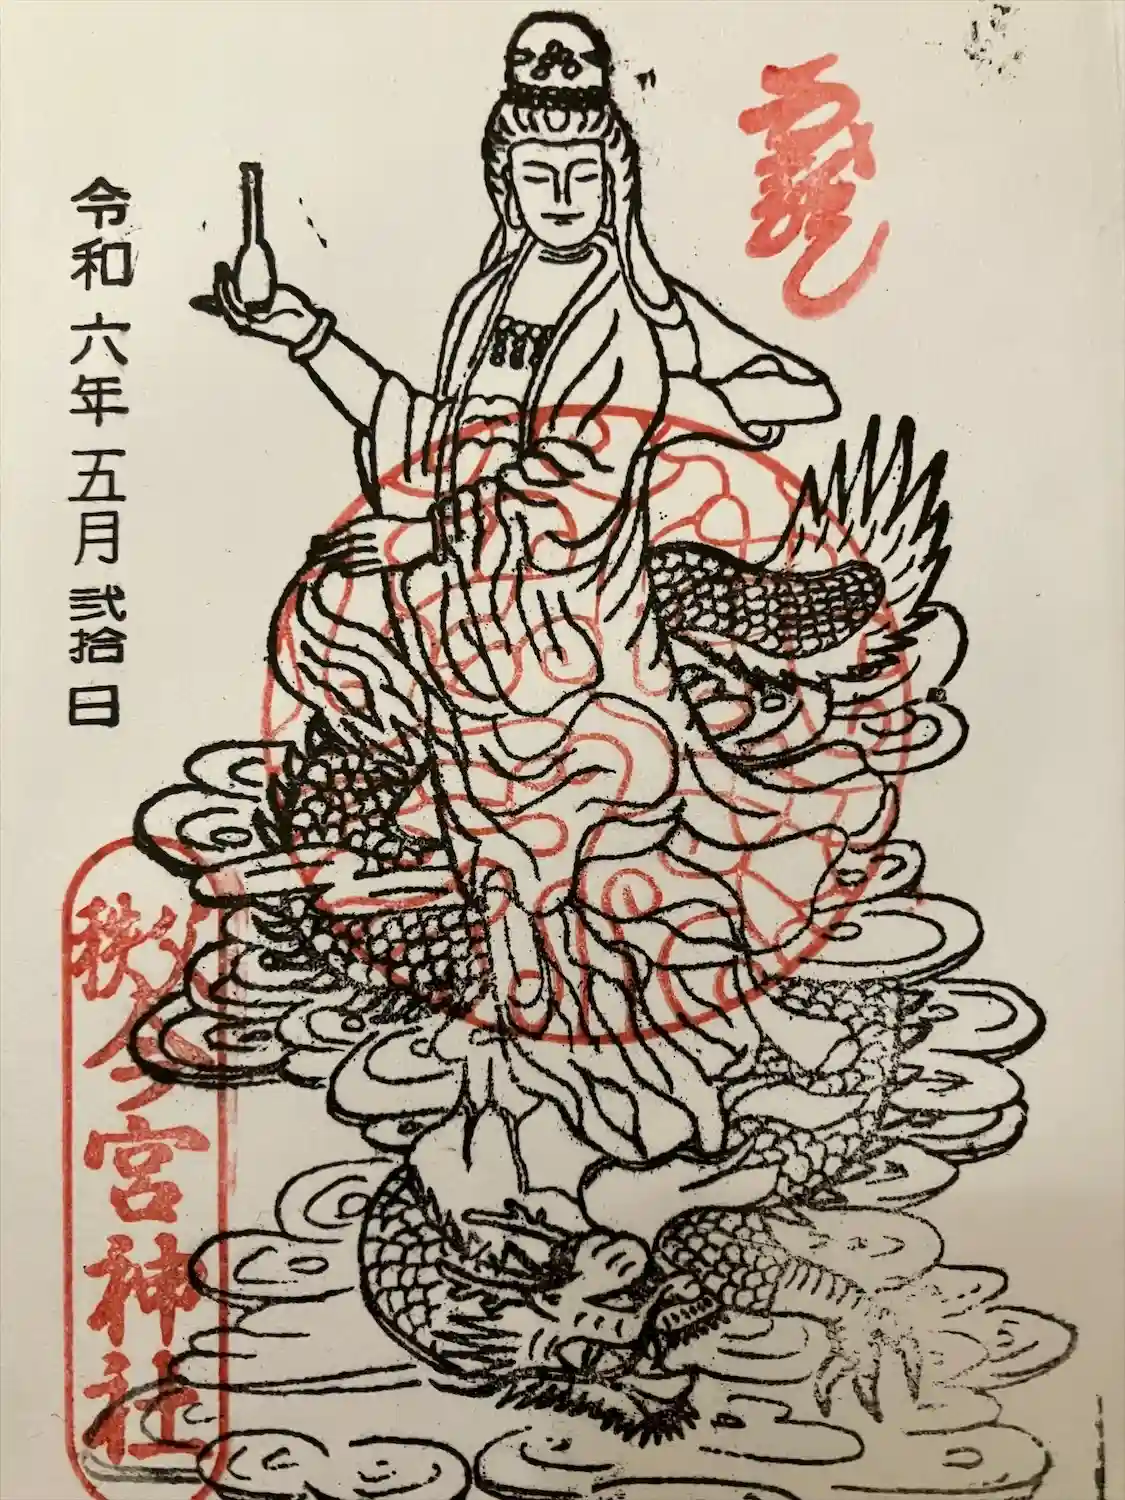 龍
令和六年五月弐拾日
秩父今宮神社